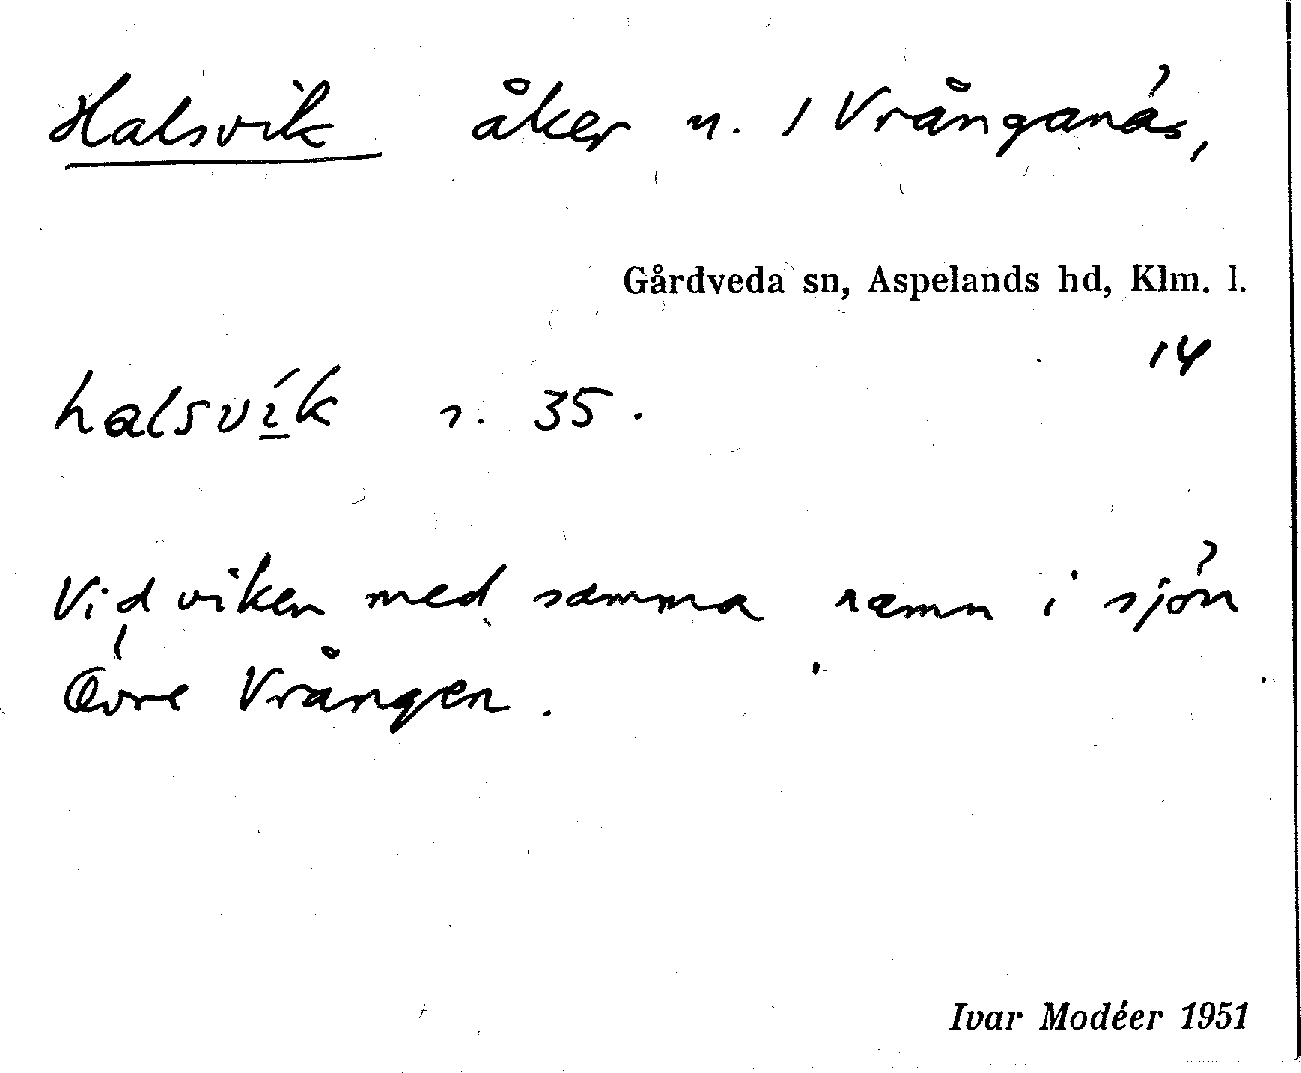 Halsvik åker n. / Vrånganäs,
Gårdveda sn, Aspelands hd, Klm. l.
14
halsvik s. 35.
Vid viken med samma namn i sjön
Övre Vrången.
Ivar Modéer 1951